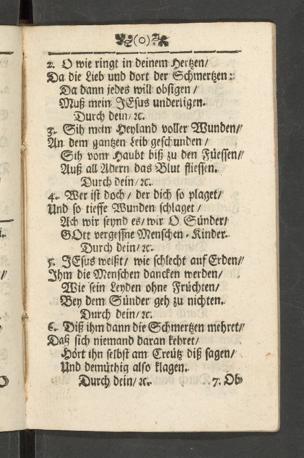 (o)
2. O wie ringt in deinem Hertzen/
Da die Lieb und dort der Schmertzen:
Da dann jedes will obsigen/
Muß mein JEsus underligen.
Durch dein/ ꝛc.
3. Sih mein Heyland voller Wunden/
An dem gantzen Leib geschunden/
Sih vom Haubt biß zu den Füessen/
Auß all Adern das Blut fliessen.
Durch dein/ ꝛc.
4. Wer ist doch/ der dich so plaget/
Und so tieffe Wunden schlaget/
Ach wir seynd es/ wir O Sünder/
GOtt vergessne Menschen-Kinder.
Durch dein/ ꝛc.
5. JEsus weißt/ wie schlecht auf Erden/
Ihm die Menschen dancken werden/
Wie sein Leyden ohne Früchten/
Bey dem Sünder geh zu nichten.
Durch dein/ ꝛc.
6. Diß ihm dann die Schmertzen mehret/
Daß sich niemand daran kehret/
Hört ihn selbst am Creütz diß sagen/
Und demüthig also klagen.
Durch dein/ ꝛc.
7. Ob